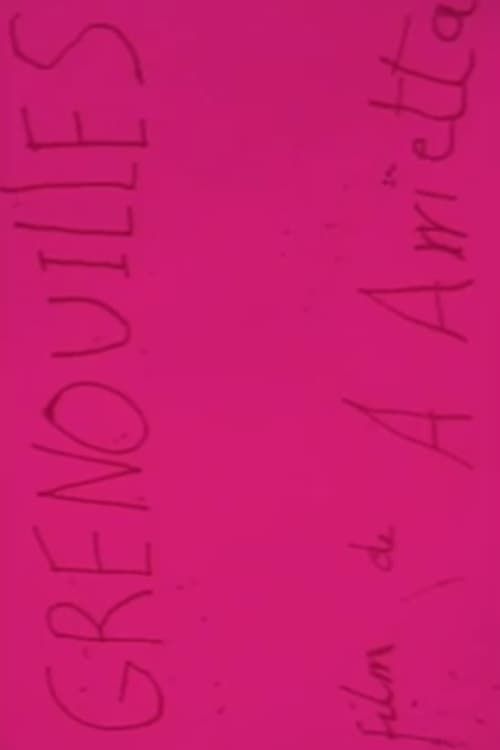 GRENOUILLES
film de A Arrietta